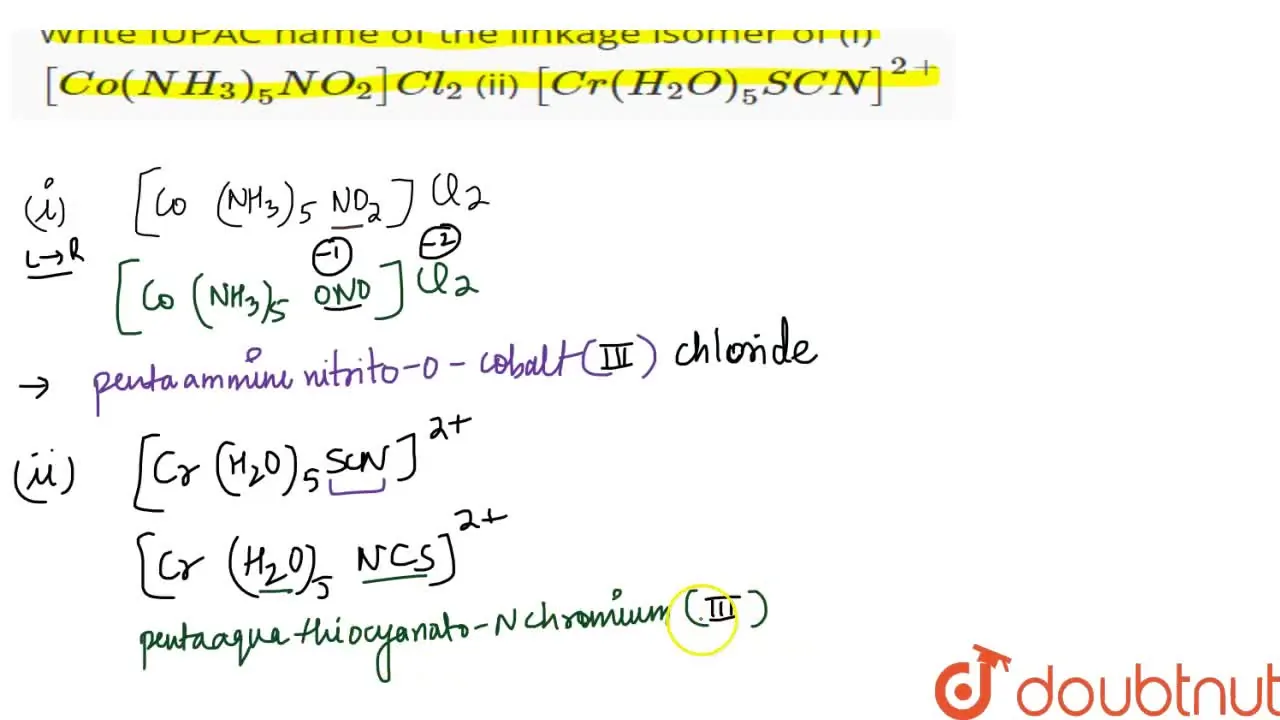 Write IUPAC name of the linkage isomer of (i)
[Co(NH₃)₅NO₂]Cl₂ (ii) [Cr(H₂O)₅SCN]²⁺
(i) [Co (NH₃)₅ NO₂] Cl₂
L→R -1 -2
[Co (NH₃)₅ ONO] Cl₂
→ pentaammine nitrito-O-cobalt(III) chloride
(ii) [Cr (H₂O)₅ SCN]²⁺
[Cr (H₂O)₅ NCS]²⁺
pentaaqua thiocyanato-N chromium (III)
doubtnut